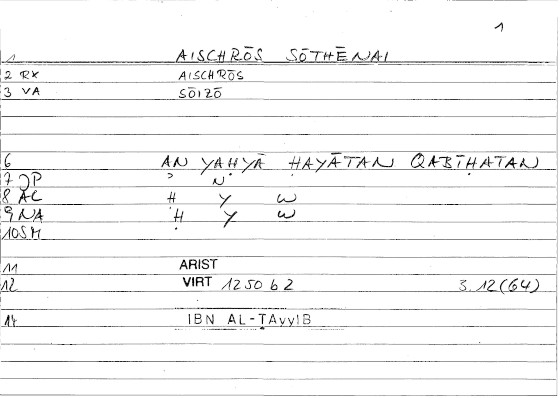 1
1 AISCHRŌS SŌTHĒNAI
2 RX AISCHRŌS
3 VA SŌIZŌ
6 AN YAḤYĀ ḤAYĀTAN QABĪḤATAN
7 JP ʾ N
8 AC Ḥ Y W
9 NA Ḥ Y W
10 SM
11 ARIST
12 VIRT 1250 b 2 3.12(64)
14 IBN AL-ṬAyyIB